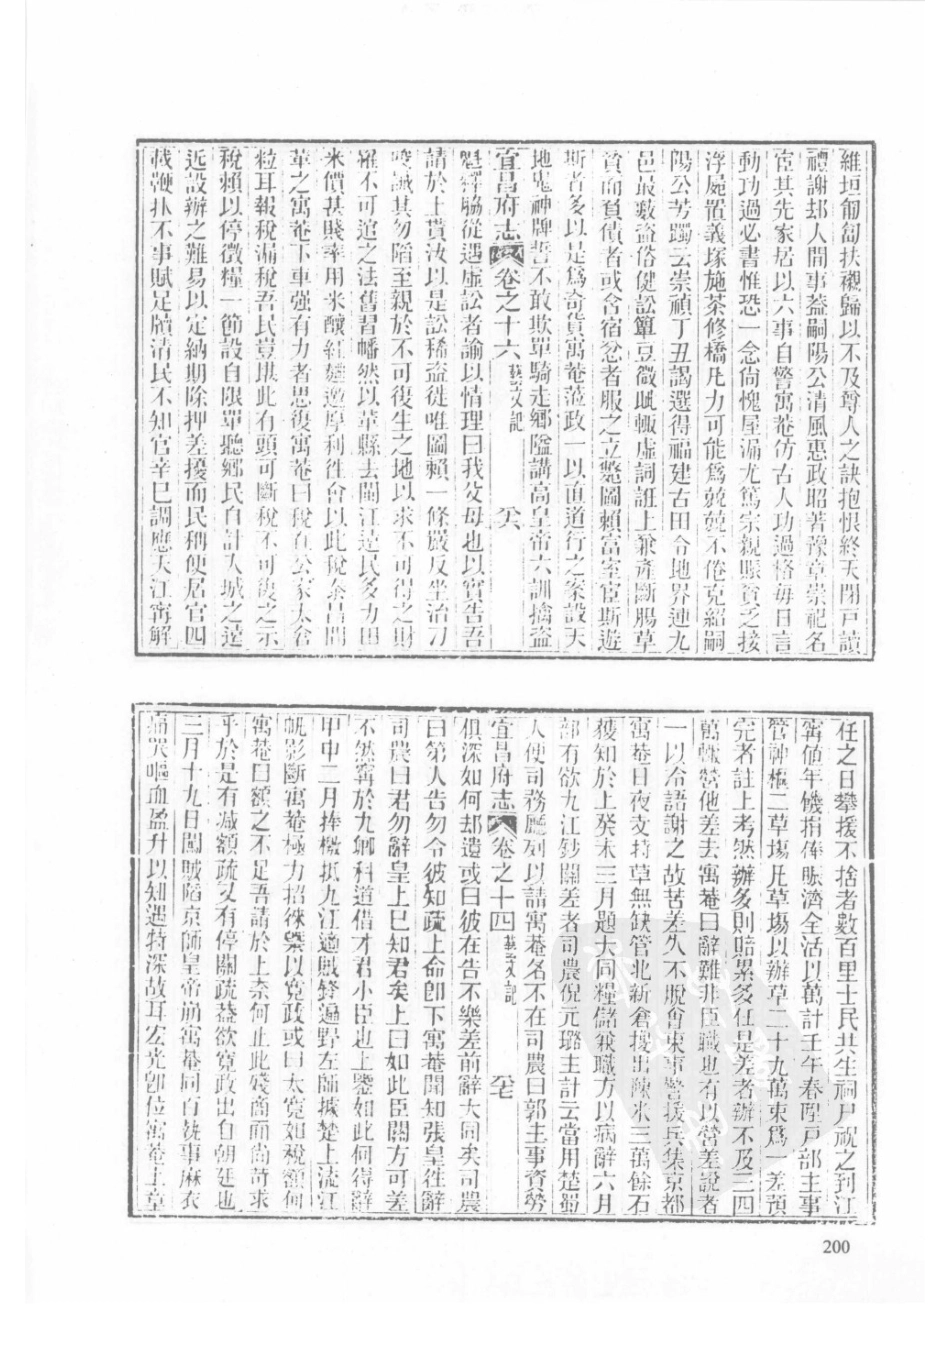 維垣匍匐扶襯歸以不及尊人之訣抱恨終天閉戸讀
禮謝却人間事益嗣陽公清風惠政昭著豫章崇祀名
宦其先家居以六事自警寓菴仿古人功過格每日言
動功過必書惟恐一念尙愧屋漏尤篤宗親賑貧乏接
浮屍置義塚施茶修橋凡力可能爲兢兢不倦克紹嗣
陽公芳躅云崇禎丁丑謁選得福建古田令地界連九
邑最藪盜俗健訟簞豆微眦輒虛詞誑上兼產斷腸草
貧而負債者或含宿忿者服之立斃圖賴富室宦斯遊
斯者多以是爲奇貨寓菴蒞政一以直道行之案設天
地鬼神牌誓不敢欺單騎走鄉隘講高皇帝六訓擒盜
宜昌府志 卷之十六 藝文記 六
魁釋脇從遇虛訟者諭以情理曰我父母也以實告吾
請於上貰汝以是訟稀盜徙唯圖賴一條嚴反坐治刀
唆誡其勿陷至親於不可復生之地以求不可得之財
羅不可逭之法舊習幡然以莘縣去閩江遠民多力田
米價甚賤率用米釀紅麯邀厚利往會以此稅泰昌間
革之寓菴下車强有力者思復寓菴曰稅在公家太倉
粒耳報稅漏稅吾民豈堪此有頭可斷稅不可復之示
稅賴以停徵糧一節設自限單聽鄉民自計入城之遠
近設辦之難易以定納期除押差擾而民稱便居官四
載鞭扑不事賦足牘清民不知官辛巳調應天江甯解
任之日攀援不捨者數百里士民共生祠尸祝之到江
甯値年饑捐俸賑濟全活以萬計壬午春陞戸部主事
管神樞二草塲凡草塲以辦草二十九萬束爲一差預
完者註上考然辦多則賠累多任是差者辦不及三四
萬輒營他差去寓菴曰辭難非臣職也有以營差說者
一以冷語謝之故苦差久不脫會東事警援兵集京都
寓菴日夜支持草無缺管北新倉撥出陳米三萬餘石
獲知於上癸未三月題大同糧儲兼職方以病辭六月
部有欲九江鈔關差者司農倪元璐主計云當用楚蜀
人使司務廳列以請寓菴名不在司農曰郭主事資勞
宜昌府志 卷之十四 藝文記 七
俱深如何却遺或曰彼在告不樂差前辭大同矣司農
曰第入告勿令彼知疏上命卽下寓菴聞知張皇往辭
司農曰君勿辭皇上已知君矣上曰如此臣關方可差
不然甯於九卿科道借才君小臣也上鑒如此何得辭
甲申二月捧檄抵九江適賊鋒逼野左師據楚上流江
帆影斷寓菴極力招徠榮以寬政或曰太寬如稅額何
寓菴曰額之不足吾請於上奈何止此殘商而尙苛求
乎於是有減額疏又有停關疏蓋欲寬政出自朝廷也
三月十九日闖賊陷京師皇帝崩寓菴同百執事麻衣
痛哭嘔血盈升以知遇特深故耳宏光卽位寓菴上章
200